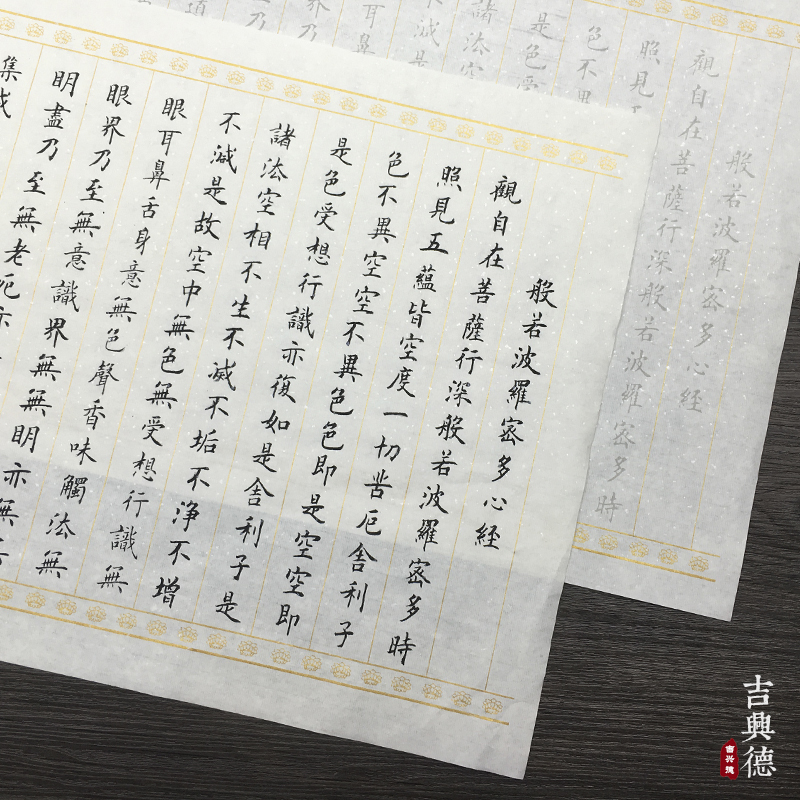 般若波羅蜜多心經
觀自在菩薩行深般若波羅蜜多時
照見五蘊皆空度一切苦厄舍利子
色不異空空不異色色即是空空即
是色受想行識亦復如是舍利子是
諸法空相不生不滅不垢不淨不增
不減是故空中無色無受想行識無
眼耳鼻舌身意無色聲香味觸法無
眼界乃至無意識界無無明亦無
明盡乃至無老死亦
集滅
般若波羅蜜多心經
觀自在菩薩行深般若波羅蜜多時
照見
色不異
是色受
諸法空
減是
耳鼻
乃
道
吉興德
吉兴德